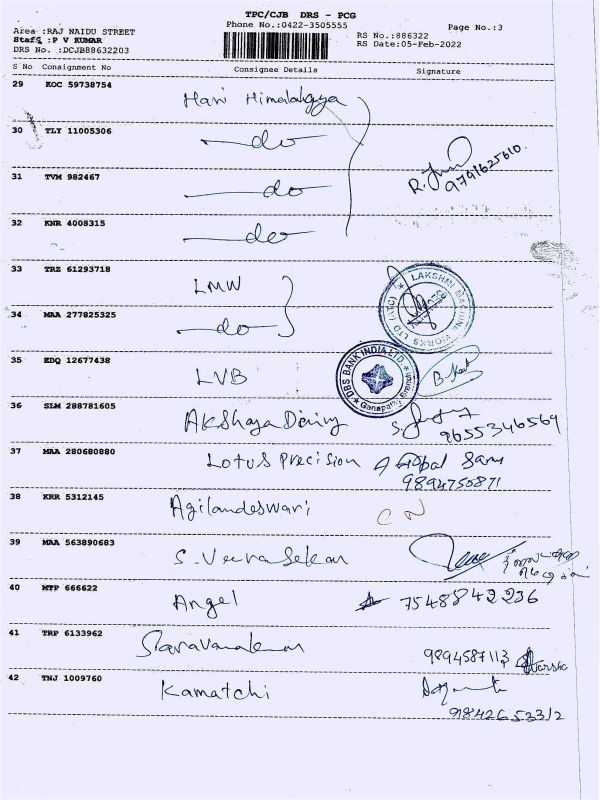 TPC/CJB DRS - PCG
Phone No.:0422-3505555
Page No.:3
Area :RAJ NAIDU STREET
Staff :P V KUMAR
DRS No. :DCJB88632203
RS No.:886322
RS Date:05-Feb-2022
S No Consignment No Consignee Details Signature
29 KOC 59738754 Hari Himalaya
30 TLY 11005306 —do—
31 TVM 982467 —do— 9791625610
32 KNR 4008315 —do—
33 TRZ 61293718 LMW
LAKSHMI MACHINE WORKS LTD (ATC)
34 MAA 277825325 —do—
35 EDQ 12677438 LVB
DBS BANK INDIA LTD.
Ganapathy Branch
36 SLM 288781605 Akshaya Dairy 9655346569
37 MAA 280680880 Lotus Precision
9894750871
38 KRR 5312145 Agilandeswari CN
39 MAA 563890683 S. Veerasekar
40 MTP 666622 Angel 7548842236
41 TRP 6133962 9894587113
42 TNJ 1009760 Kamatchi
9842653312